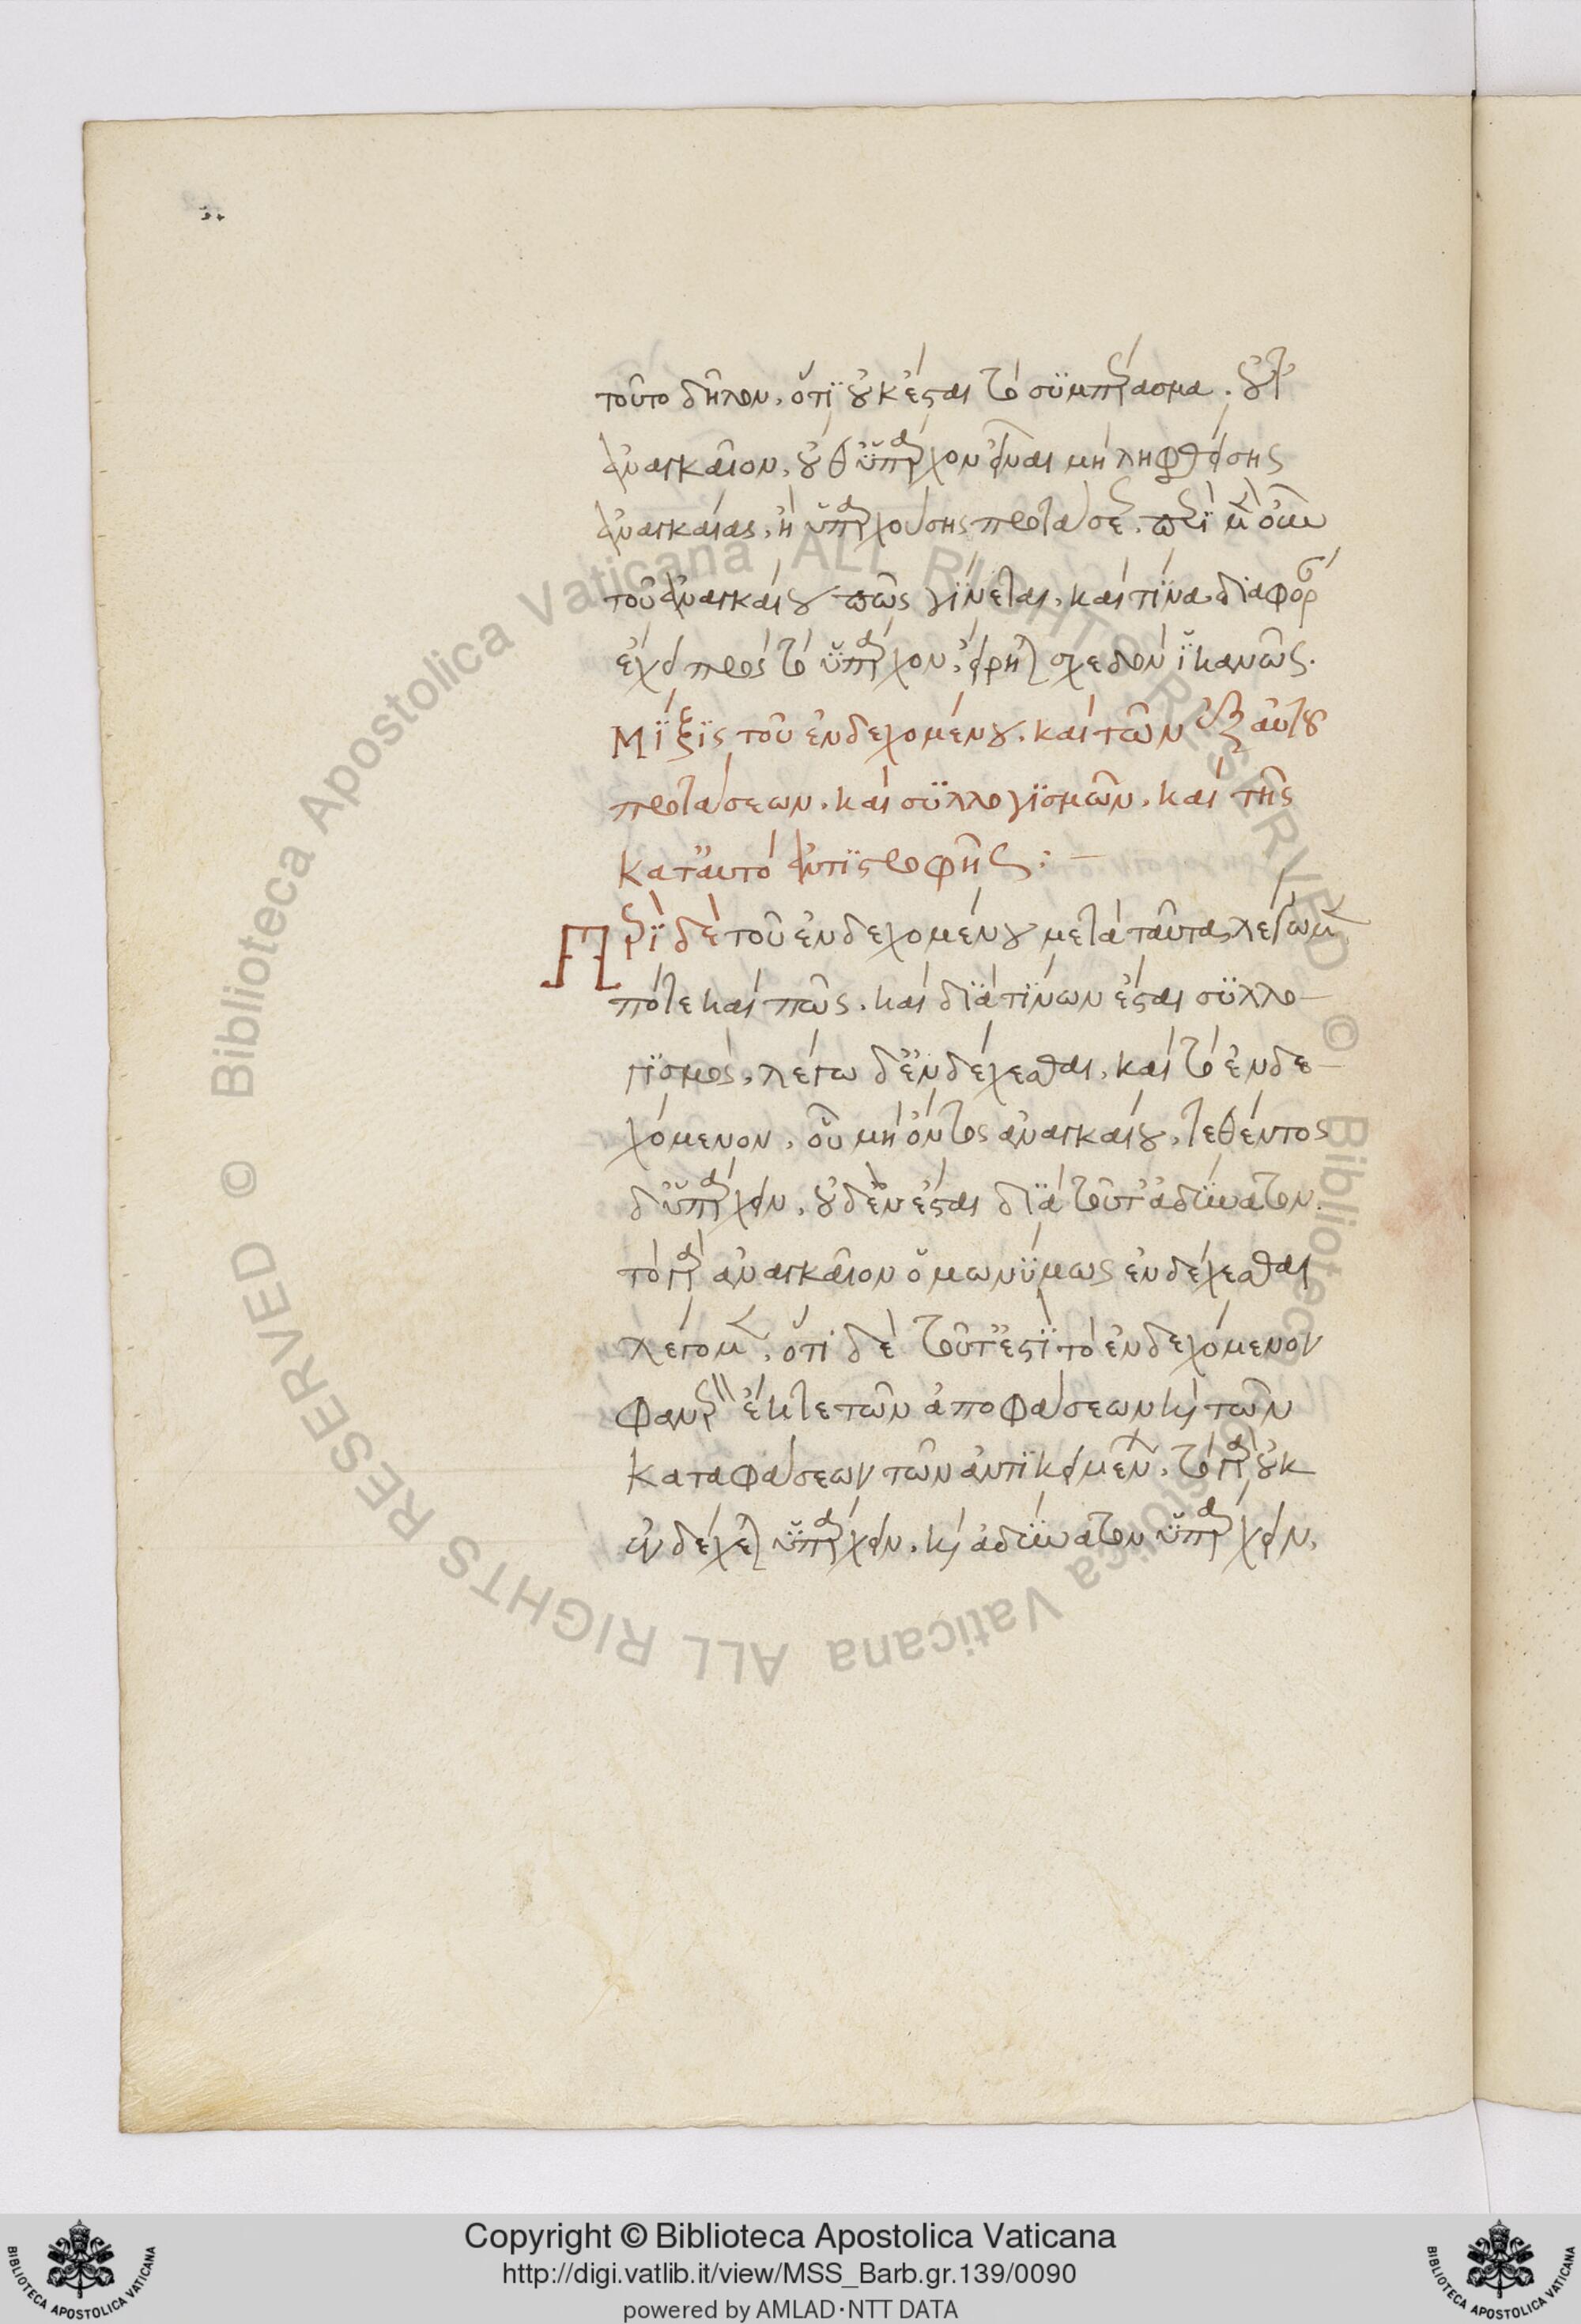 τοῦτο δῆλον, ὅτι οὐκ ἔσται τὸ συμπέρασμα. οὔτ'
ἀναγκαῖον, οὔθ' ὑπάρχον εἶναι μὴ ληφθείσης
ἀναγκαίας, ἢ ὑπαρχούσης προτάσεως. περὶ μὲν οὖν
τοῦ ἀναγκαίου πῶς γίνεται, καὶ τίνα διαφορὰν
ἔχει πρὸς τὸ ὑπάρχον, εἴρηται σχεδὸν ἱκανῶς.
Μίξις τοῦ ἐνδεχομένου, καὶ τῶν ἐξ αὐτοῦ
προτάσεων, καὶ συλλογισμῶν, καὶ τῆς
κατ' αὐτὸ ἀντιστροφῆς:—
Περὶ δὲ τοῦ ἐνδεχομένου μετὰ ταῦτα λέγωμεν
πότε καὶ πῶς, καὶ διὰ τίνων ἔσται συλλο-
γισμός, λέγω δ' ἐνδέχεσθαι, καὶ τὸ ἐνδε-
χόμενον, οὗ μὴ ὄντος ἀναγκαίου, τεθέντος
δ' ὑπάρχειν, οὐδὲν ἔσται διὰ τοῦτ' ἀδύνατον.
τὸ γὰρ ἀναγκαῖον ὁμωνύμως ἐνδέχεσθαι
λέγομεν, ὅτι δὲ τοῦτ' ἐστὶ τὸ ἐνδεχόμενον
φανερὸν ἔκ τε τῶν ἀποφάσεων καὶ τῶν
καταφάσεων τῶν ἀντικειμένων, τὸ γὰρ οὐκ
ἐνδέχεται ὑπάρχειν, καὶ ἀδύνατον ὑπάρχειν,
Copyright © Biblioteca Apostolica Vaticana
http://digi.vatlib.it/view/MSS_Barb.gr.139/0090
powered by AMLAD·NTT DATA
BIBLIOTECA APOSTOLICA VATICANA
BIBLIOTECA APOSTOLICA VATICANA
© Biblioteca Apostolica Vaticana ALL RIGHTS RESERVED
© Biblioteca Apostolica Vaticana ALL RIGHTS RESERVED